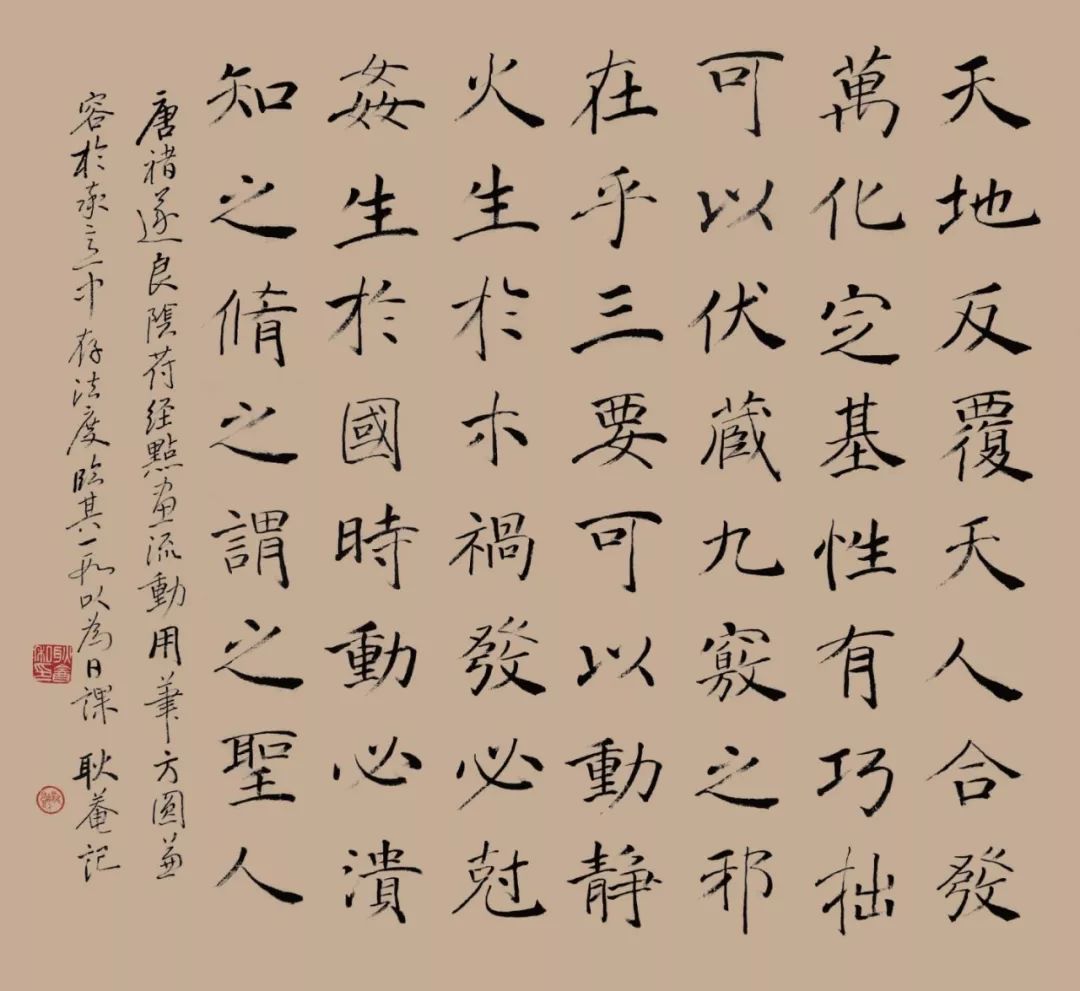 天地反覆天人合發
萬化定基性有巧拙
可以伏藏九竅之邪
在乎三要可以動静
火生於木禍發必尅
姦生於國時動必潰
知之脩之謂之聖人
唐褚遂良陰符经點畫流動用筆方圓兼
容於率意中存法度臨其一段以為日課 耿菴記